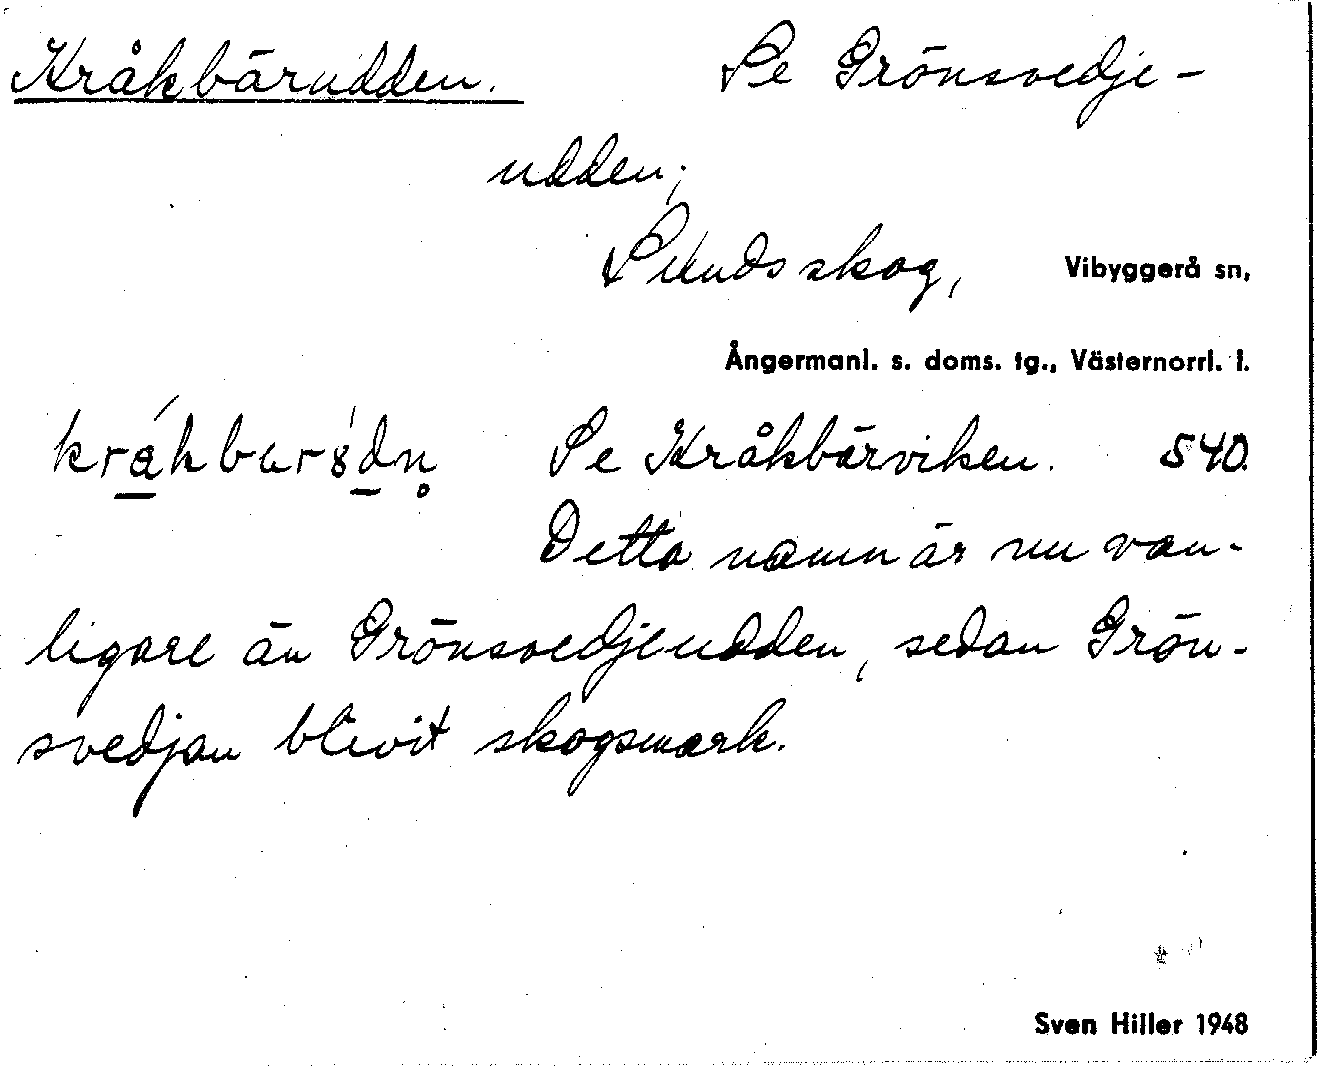 Kråkbärudden. Se Grönsvedje-
udden,
Sundsskog, Vibyggerå sn,
Ångermanl. s. doms. tg., Västernorrl. l.
Se Kråkbärviken. 540.
Detta namn är nu van-
ligare än Grönsvedjeudden, sedan Grön-
svedjan blivit skogsmark.
Sven Hiller 1948